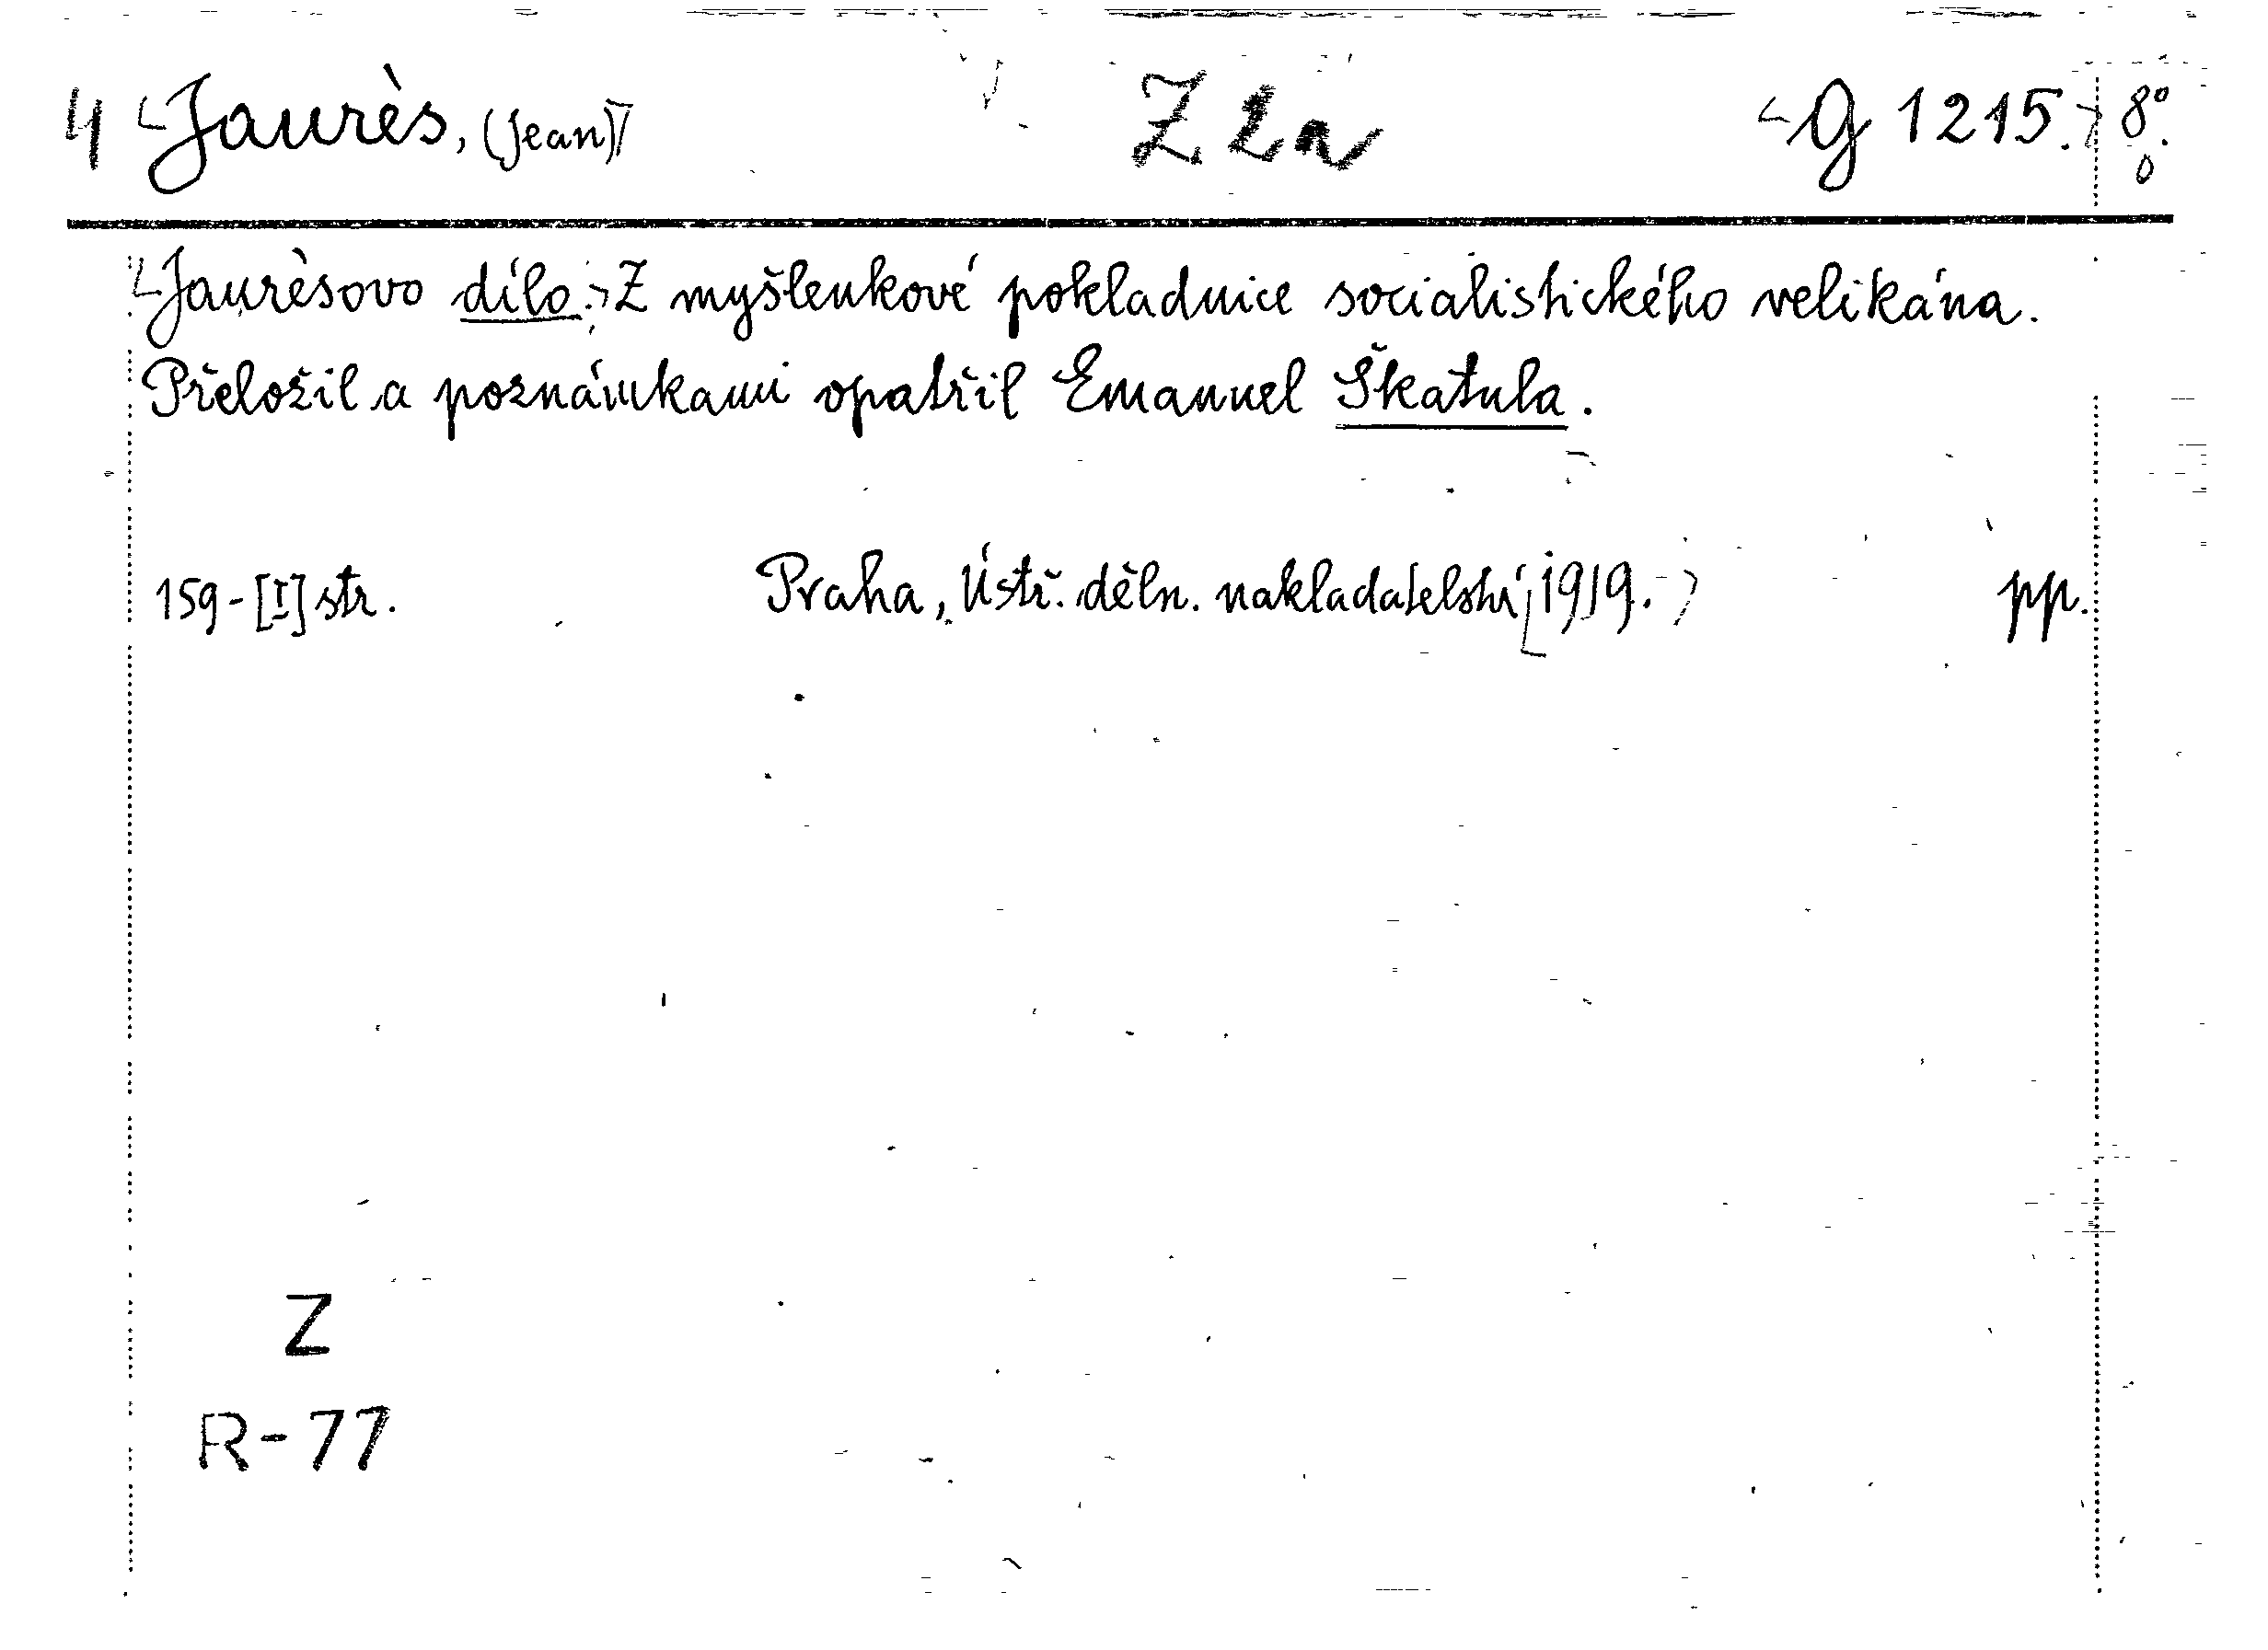 4 Jaurès, (Jean) Z 2a G 1215. 8°.
Jaurèsovo dílo. Z myšlenkové pokladnice socialistického velikána.
Přeložil a poznámkami opatřil Emanuel Škatula.
159-[I] str. Praha, Ústř. děln. nakladatelství, 1919. pp.
Z
R-77